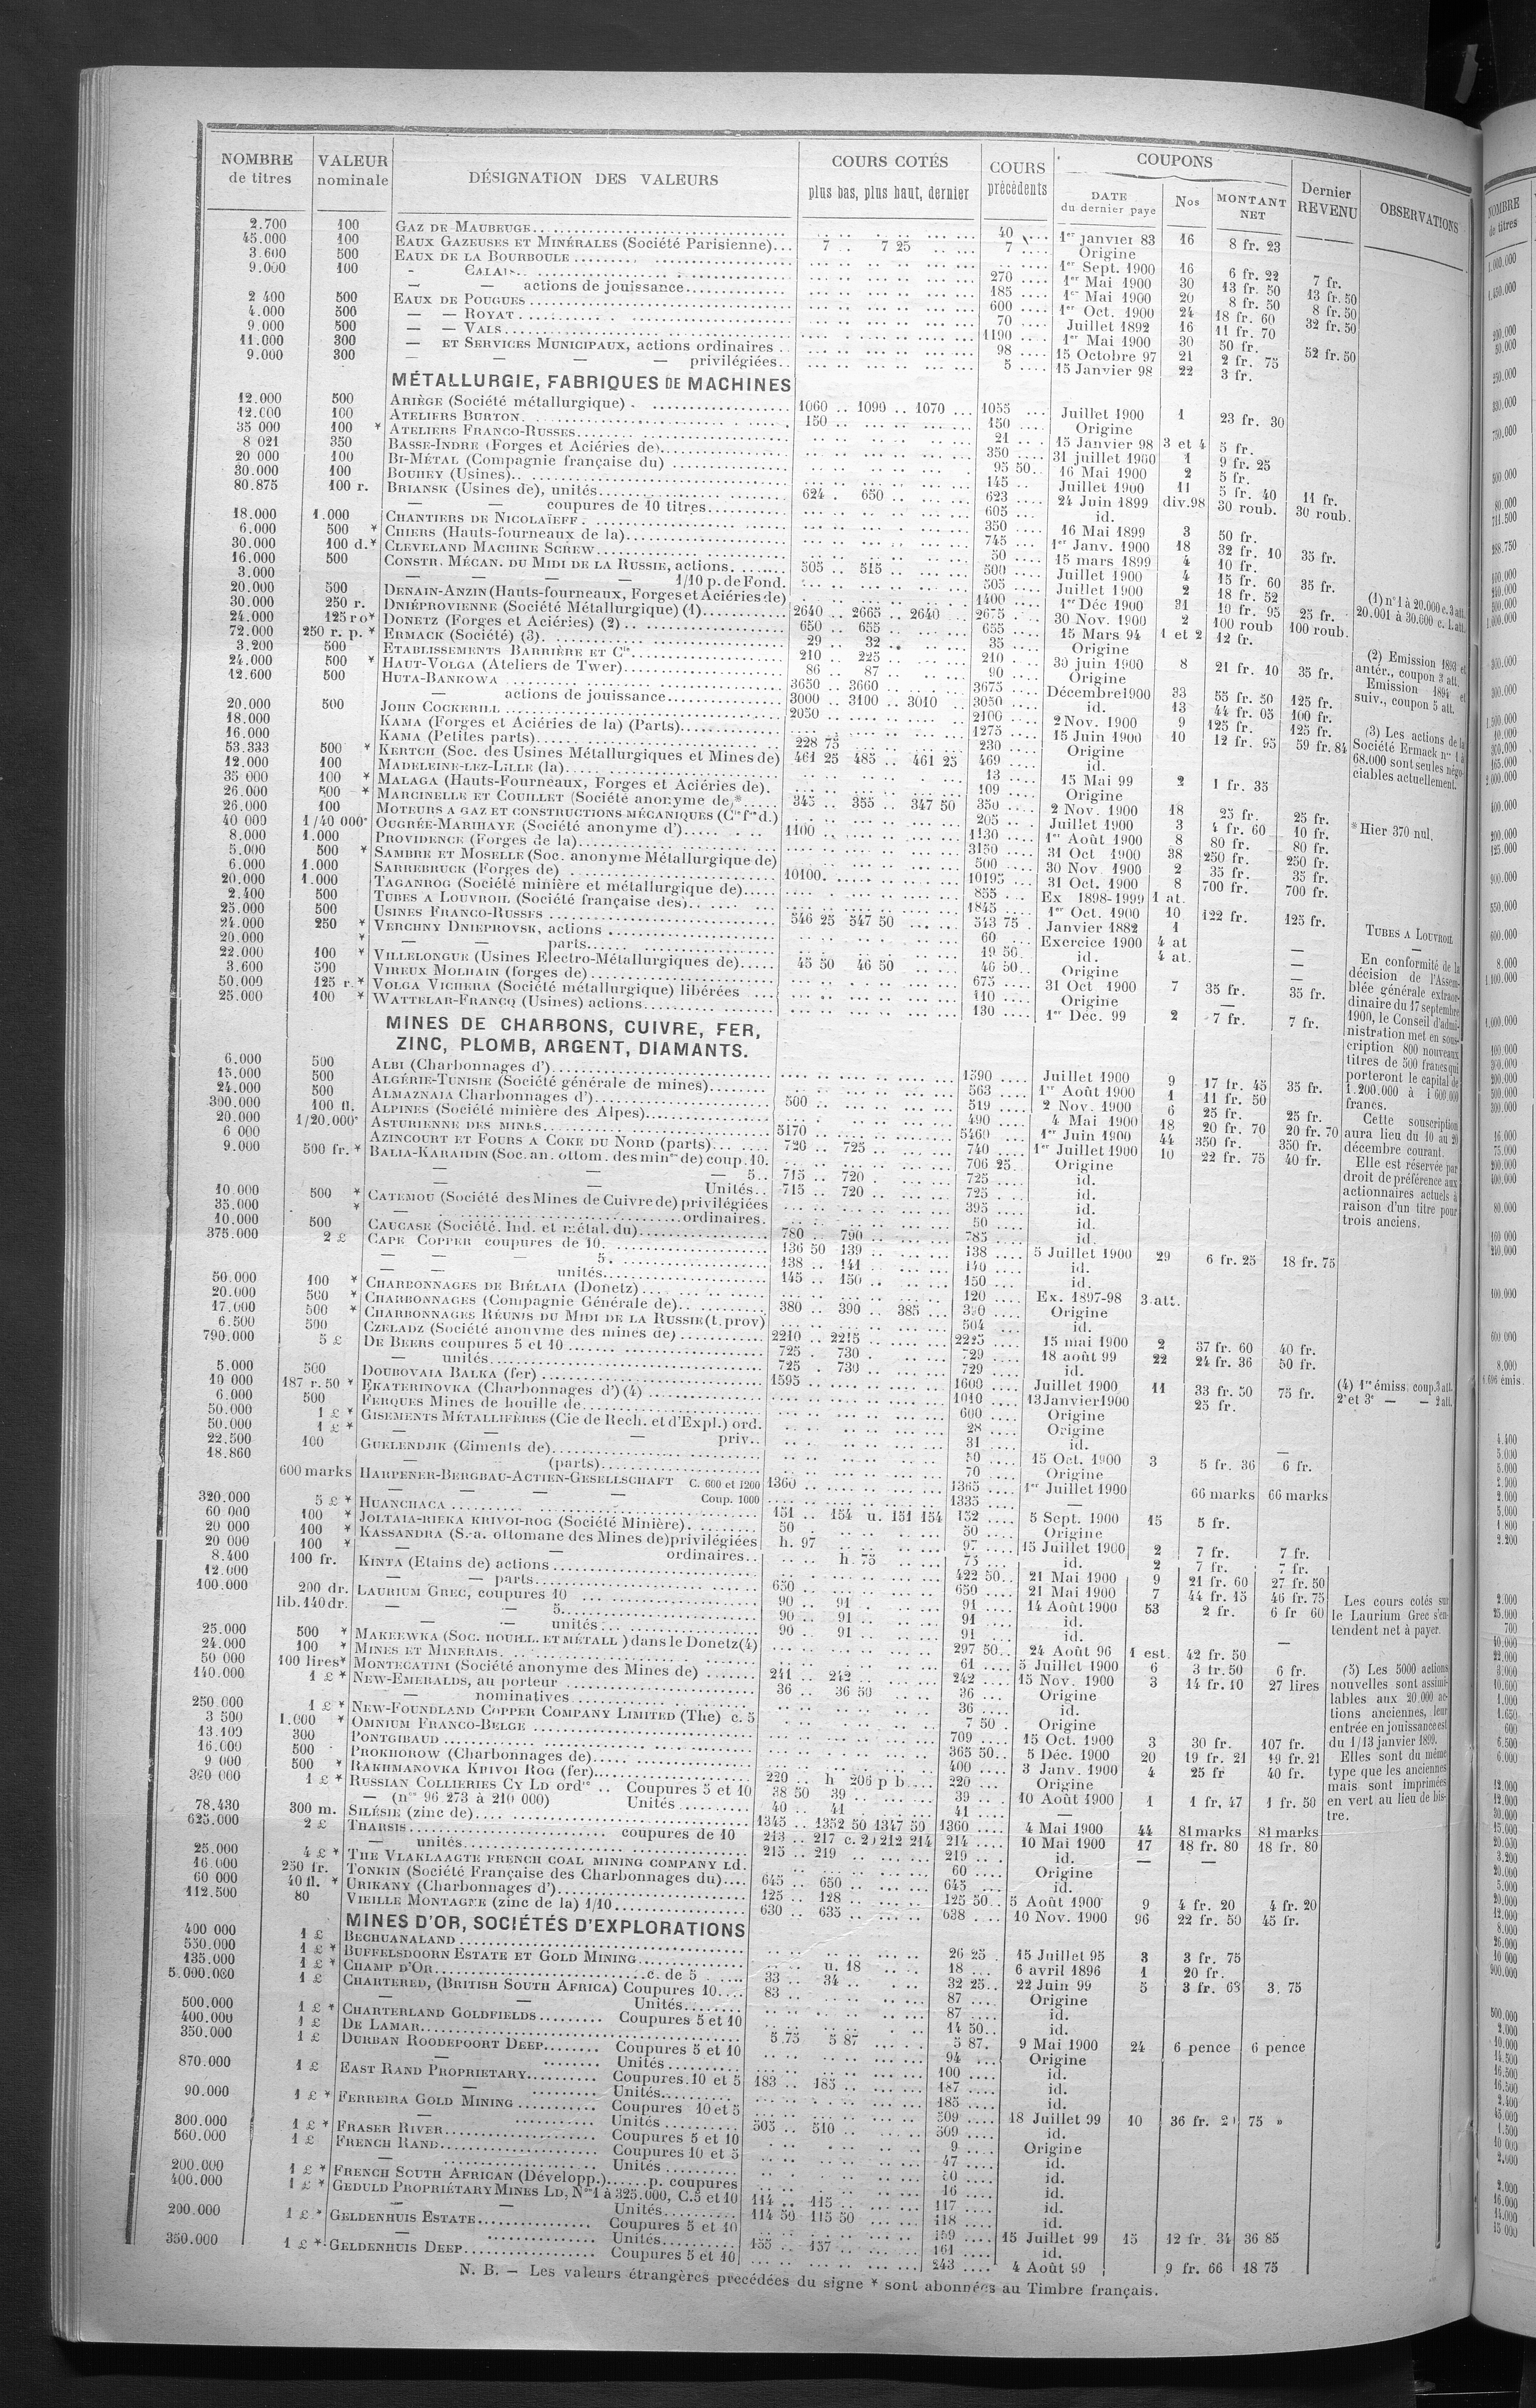 NOMBRE de titres | VALEUR nominale | DÉSIGNATION DES VALEURS | COURS COTÉS plus bas, plus haut, dernier | COURS précédents | COUPONS DATE du dernier paye | Nos | MONTANT NET | Dernier REVENU | OBSERVATIONS
2.700 100 GAZ DE MAUBEUGE 40 1er janvier 83 16 8 fr. 23
45.000 100 EAUX GAZEUSES ET MINÉRALES (Société Parisienne) 7 .. 7 25 7 Origine
3.600 500 EAUX DE LA BOURBOULE 1er Sept. 1900 16 6 fr. 22 7 fr.
9.000 100 — CALAIS 270 1er Mai 1900 30 13 fr. 50 13 fr. 50
— — actions de jouissance 185 1er Mai 1900 20 8 fr. 50 8 fr. 50
2 400 500 EAUX DE POUGUES 600 1er Oct. 1900 24 18 fr. 60 32 fr. 50
4.000 500 — — ROYAT 70 Juillet 1892 16 11 fr. 70
9.000 500 — — VALS 1190 1er Mai 1900 30 50 fr. 52 fr. 50
11.000 300 — ET SERVICES MUNICIPAUX, actions ordinaires 98 15 Octobre 97 21 2 fr. 75
9.000 300 — — — — privilégiées 5 15 Janvier 98 22 3 fr.
MÉTALLURGIE, FABRIQUES DE MACHINES
12.000 500 ARIÈGE (Société métallurgique) 1060 .. 1090 .. 1070 1055 Juillet 1900 1 23 fr. 30
12.000 100 ATELIERS BURTON 150 150 Origine
35 000 100 * ATELIERS FRANCO-RUSSES 21 15 Janvier 98 3 et 4 5 fr.
8 021 350 BASSE-INDRE (Forges et Aciéries de) 350 31 juillet 1900 1 9 fr. 25
20 000 100 BI-MÉTAL (Compagnie française du) 95 50 16 Mai 1900 2 5 fr.
30.000 100 BOUHEY (Usines) 145 Juillet 1900 11 5 fr. 40 11 fr.
80.875 100 r. BRIANSK (Usines de), unités 624 . 650 623 24 Juin 1899 div.98 30 roub. 30 roub.
— — coupures de 10 titres 605 id.
18.000 1.000 CHANTIERS DE NICOLAÏEFF 350 16 Mai 1899 3 50 fr.
6.000 500 * CHIERS (Hauts-fourneaux de la) 745 1er Janv. 1900 18 32 fr. 10 35 fr.
30.000 100 d.* CLEVELAND MACHINE SCREW 50 15 mars 1899 4 10 fr.
16.000 500 CONSTR. MÉCAN. DU MIDI DE LA RUSSIE, actions 505 .. 515 500 Juillet 1900 4 15 fr. 60 35 fr.
3.000 — — — — 1/10 p. de Fond. 505 Juillet 1900 2 18 fr. 52
20.000 500 DENAIN-ANZIN (Hauts-fourneaux, Forges et Aciéries de) 1400 1er Déc 1900 31 19 fr. 95 25 fr.
30.000 250 r. DNIÉPROVIENNE (Société Métallurgique) (1) 2640 .. 2665 .. 2640 2675 30 Nov. 1900 2 100 roub 100 roub.
24.000 125 ro* DONETZ (Forges et Aciéries) (2) 650 .. 655 655 15 Mars 94 1 et 2 12 fr.
72.000 250 r. p. * ERMACK (Société) (3) 29 .. 32 35 Origine
3.200 500 ETABLISSEMENTS BARRIÈRE ET Cie 210 .. 225 210 30 juin 1900 8 21 fr. 10 35 fr.
24.000 500 * HAUT-VOLGA (Ateliers de Twer) 86 .. 87 90 Origine
12.600 500 HUTA-BANKOWA 3650 .. 3660 3675 Décembre 1900 33 55 fr. 50 125 fr.
— actions de jouissance 3000 .. 3100 .. 3010 3050 id. 13 44 fr. 05 100 fr.
20.000 500 JOHN COCKERILL 2050 2100 2 Nov. 1900 9 125 fr. 125 fr.
18.000 KAMA (Forges et Aciéries de la) (Parts) 1275 15 Juin 1900 10 12 fr. 95 59 fr. 84
16.000 KAMA (Petites parts) 228 75 230 Origine
53.333 500 * KERTCH (Soc. des Usines Métallurgiques et Mines de) 461 25 485 .. 461 25 469 id.
12.000 100 MADELEINE-LEZ-LILLE (la) 13 15 Mai 99 2 1 fr. 35
35 000 100 * MALAGA (Hauts-Fourneaux, Forges et Aciéries de) 109 Origine
26.000 500 * MARCINELLE ET COUILLET (Société anonyme de)* 345 .. 355 .. 347 50 350 2 Nov. 1900 18 25 fr. 25 fr.
26.000 100 MOTEURS A GAZ ET CONSTRUCTIONS MÉCANIQUES (Cie fse d.) 205 Juillet 1900 3 4 fr. 60 10 fr.
40 000 1/40 000e OUGRÉE-MARIHAYE (Société anonyme d') 1100 1130 1er Août 1900 8 80 fr. 80 fr.
8.000 1.000 PROVIDENCE (Forges de la) 3150 31 Oct 1900 38 250 fr. 250 fr.
5.000 500 * SAMBRE ET MOSELLE (Soc. anonyme Métallurgique de) 500 30 Nov. 1900 2 35 fr. 35 fr.
6.000 1.000 SARREBRUCK (Forges de) 10100 10195 31 Oct. 1900 8 700 fr. 700 fr.
20.000 1.000 TAGANROG (Société minière et métallurgique de) 855 Ex 1898-1999 1 at.
2.400 500 TUBES A LOUVROIL (Société française des) 1845 1er Oct. 1900 10 122 fr. 125 fr.
25.000 500 USINES FRANCO-RUSSES 546 25 547 50 543 75 Janvier 1882 1
24.000 250 * VERCHNY DNIEPROVSK, actions 60 Exercice 1900 4 at —
20.000 * — — parts 19 50 id. 4 at. —
22.000 100 * VILLELONGUE (Usines Electro-Métallurgiques de) 45 50 46 50 46 50 Origine —
3.600 500 VIREUX MOLHAIN (forges de) 675 31 Oct 1900 7 35 fr. 35 fr.
50.000 125 r.* VOLGA VICHERA (Société métallurgique) libérées 110 Origine —
25.000 100 * WATTELAR-FRANCQ (Usines) actions 130 1er Déc. 99 2 7 fr. 7 fr.
MINES DE CHARBONS, CUIVRE, FER,
ZINC, PLOMB, ARGENT, DIAMANTS.
6.000 500 ALBI (Charbonnages d') 1590 Juillet 1900 9 17 fr. 45 35 fr.
15.000 500 ALGÉRIE-TUNISIE (Société générale de mines) 563 1er Août 1900 1 11 fr. 50
24.000 500 ALMAZNAIA Charbonnages d') 500 519 2 Nov. 1900 6 25 fr. 25 fr.
300.000 100 fl. ALPINES (Société minière des Alpes) 490 4 Mai 1900 18 20 fr. 70 20 fr. 70
20.000 1/20.000e ASTURIENNE DES MINES 5170 5460 1er Juin 1900 44 350 fr. 350 fr.
6 000 AZINCOURT ET FOURS A COKE DU NORD (parts) 720 .. 725 740 1er Juillet 1900 10 22 fr. 75 40 fr.
9.000 500 fr. * BALIA-KARAIDIN (Soc. an. ottom. des mines de) coup. 10. 706 25 Origine
— — 5 715 .. 720 725 id.
— — Unités 715 .. 720 725 id.
10.000 500 * CATEMOU (Société des Mines de Cuivre de) privilégiées 395 id.
35.000 * — ordinaires 50 id.
10.000 500 CAUCASE (Société. Ind. et métal. du) 780 .. 790 785 id.
375.000 2 £ CAPE COPPER coupures de 10 136 50 139 138 5 Juillet 1900 29 6 fr. 25 18 fr. 75
— — — 5 138 .. 141 140 id.
— — unités 145 .. 150 150 id.
50.000 100 * CHARBONNAGES DE BIÉLAIA (Donetz) 120 Ex. 1897-98 3 att.
20.000 500 * CHARBONNAGES (Compagnie Générale de) 380 .. 390 .. 385 390 Origine
17.000 500 * CHARBONNAGES RÉUNIS DU MIDI DE LA RUSSIE (t. prov) 504 id.
6.500 500 CZELADZ (Société anonyme des mines de) 2210 .. 2215 2225 15 mai 1900 2 37 fr. 60 40 fr.
790.000 5 £ DE BEERS coupures 5 et 10 725 . 730 729 18 août 99 22 24 fr. 36 50 fr.
— unités 725 . 730 729 id.
5.000 500 DOUBOVAIA BALKA (fer) 1595 1600 Juillet 1900 11 33 fr. 50 75 fr.
10 000 187 r. 50 * EKATERINOVKA (Charbonnages d') (4) 1010 13 Janvier 1900 25 fr.
6.000 500 FERQUES Mines de houille de 600 Origine
50.000 1 £ * GISEMENTS MÉTALLIFÈRES (Cie de Rech. et d'Expl.) ord. 28 Origine
50.000 1 £ * — — — priv. 31 id. —
22.500 100 GUELENDJIK (Ciments de) 50 15 Oct. 1900 3 5 fr. 36 6 fr.
18.860 — (parts) 70 Origine
600 marks HARPENER-BERGBAU-ACTIEN-GESELLSCHAFT C. 600 et 1200 1360 1365 1er Juillet 1900 66 marks 66 marks
— — — Coup. 1000 1335 —
320.000 5 £ * HUANCHACA 151 .. 154 u. 151 154 152 5 Sept. 1900 15 5 fr.
60 000 100 * JOLTAIA-RIEKA KRIVOI-ROG (Société Minière) 50 50 Origine
20 000 100 * KASSANDRA (S.-a. ottomane des Mines de) privilégiées h. 97 97 15 Juillet 1900 2 7 fr. 7 fr.
20 000 100 * — — ordinaires h. 75 75 id. 2 7 fr. 7 fr.
8.400 100 fr. KINTA (Etains de) actions 422 50 21 Mai 1900 9 21 fr. 60 27 fr. 50
12.000 — — parts 650 650 21 Mai 1900 7 44 fr. 15 46 fr. 75
100.000 200 dr. LAURIUM GREC, coupures 10 90 .. 91 91 14 Août 1900 53 2 fr. 6 fr 60
lib. 140 dr. — — 5 90 .. 91 91 id.
— — unités 90 .. 91 91 id.
25.000 500 * MAKEEWKA (SOC. HOUILL. ET MÉTALL) dans le Donetz (4) 297 50 24 Août 96 1 est. 42 fr. 50 —
24.000 100 * MINES ET MINERAIS 61 5 Juillet 1900 6 3 fr. 50 6 fr.
50 000 100 lires* MONTECATINI (Société anonyme des Mines de) 241 .. 242 242 15 Nov. 1900 3 14 fr. 10 27 lires
140.000 1 £ * NEW-EMERALDS, au porteur 36 .. 36 50 36 Origine
— nominatives 36 id.
250.000 1 £ * NEW-FOUNDLAND COPPER COMPANY LIMITED (The) c. 5 7 50 Origine
3 500 1.000 * OMNIUM FRANCO-BELGE 709 15 Oct. 1900 3 30 fr. 107 fr.
13.100 300 PONTGIBAUD 365 50 5 Déc. 1900 20 19 fr. 21 19 fr. 21
16.000 500 PROKHOROW (Charbonnages de) 400 3 Janv. 1900 4 25 fr 40 fr.
9 000 500 * RAKHMANOVKA KRIVOI ROG (fer) 220 .. h 206 p b 220 Origine
360 000 1 £ * RUSSIAN COLLIERIES CY LD ordre Coupures 5 et 10 38 50 39 39 10 Août 1900 1 1 fr. 47 1 fr. 50
— (nos 96.273 à 210 000) Unités 40 .. 41 41 —
78.430 300 m. SILÉSIE (zinc de) 1345 .. 1352 50 1347 50 1360 4 Mai 1900 44 81 marks 81 marks
625.000 2 £ THARSIS coupures de 10 213 .. 217 c. 2) 212 214 214 10 Mai 1900 17 18 fr. 80 18 fr. 80
— unités 215 .. 219 219 id. — —
25.000 4 £ * THE VLAKLAAGTE FRENCH COAL MINING COMPANY LD. 60 Origine
16.000 250 fr. TONKIN (Société Française des Charbonnages du) 645 .. 650 645 id.
60 000 40 fl. * URIKANY (Charbonnages d') 125 .. 128 125 50 5 Août 1900 9 4 fr. 20 4 fr. 20
112.500 80 VIEILLE MONTAGNE (zinc de la) 1/10 630 .. 635 638 10 Nov. 1900 96 22 fr. 50 45 fr.
MINES D'OR, SOCIÉTÉS D'EXPLORATIONS
400 000 1 £ BECHUANALAND 26 25 15 Juillet 95 3 3 fr. 75
550.000 1 £ * BUFFELSDOORN ESTATE ET GOLD MINING u. 18 18 6 avril 1896 1 20 fr.
135.000 1 £ * CHAMP D'OR c. de 5 33 .. 34 32 25 22 Juin 99 5 3 fr. 63 3. 75
5.000.000 1 £ CHARTERED, (BRITISH SOUTH AFRICA) Coupures 10 83 87 Origine
— — Unités 87 id.
500.000 1 £ * CHARTERLAND GOLDFIELDS Coupures 5 et 10 14 50 id.
400.000 1 £ DE LAMAR 5.75 5 87 5 87 9 Mai 1900 24 6 pence 6 pence
350.000 1 £ DURBAN ROODEPOORT DEEP Coupures 5 et 10 94 Origine
— Unités 100 id.
870.000 1 £ EAST RAND PROPRIETARY Coupures. 10 et 5 183 .. 185 187 id.
— Unités 185 id.
90.000 1 £ * FERREIRA GOLD MINING Coupures 10 et 5 509 18 Juillet 99 10 36 fr. 75 »
— Unités 505 .. 510 509 id.
300.000 1 £ * FRASER RIVER Coupures 5 et 10 9 Origine
560.000 1 £ FRENCH RAND Coupures 10 et 5 47 id.
— Unités id.
200.000 1 £ * FRENCH SOUTH AFRICAN (Développ.) p. coupures 16 id.
400.000 1 £ * GEDULD PROPRIÉTARY MINES LD, Nos 1 à 325.000, C. 5 et 10 114 .. 115 117 id.
— — Unités 114 50 115 50 118 id.
200.000 1 £ * GELDENHUIS ESTATE Coupures 5 et 10 159 15 Juillet 99 15 12 fr. 34 36 85
— Unités 155 .. 157 161 id.
350.000 1 £ * GELDENHUIS DEEP Coupures 5 et 10 243 4 Août 99 9 fr. 66 18 75
(1) nos 1 à 20.000 c. 3 att.
20.001 à 30.600 c. 1. att.
(2) Emission 1893 et
antér., coupon 3 att.
Emission 1894 et
suiv., coupon 5 att.
(3) Les actions de la
Société Ermack nos 1 à
68.000 sont seules négo-
ciables actuellement.
* Hier 370 nul.
TUBES A LOUVROIL
—
En conformité de la
décision de l'Assem-
blée générale extraor-
dinaire du 17 septembre
1900, le Conseil d'admi-
nistration met en sous-
cription 800 nouveaux
titres de 500 francs qui
porteront le capital de
1.200.000 à 1 600 000
francs.
Cette souscription
aura lieu du 10 au 20
décembre courant.
Elle est réservée par
droit de préférence aux
actionnaires actuels à
raison d'un titre pour
trois anciens.
(4) 1re émiss. coup. 3 att.
2e et 3e — — 2 att.
Les cours cotés sur
le Laurium Grec s'en-
tendent net à payer.
(5) Les 5000 actions
nouvelles sont assimi-
lables aux 20.000 ac-
tions anciennes, leur
entrée en jouissance est
du 1/13 janvier 1899.
Elles sont du même
type que les anciennes
mais sont imprimées
en vert au lieu de bis-
tre.
N. B. — Les valeurs étrangères precédées du signe * sont abonnées au Timbre français.